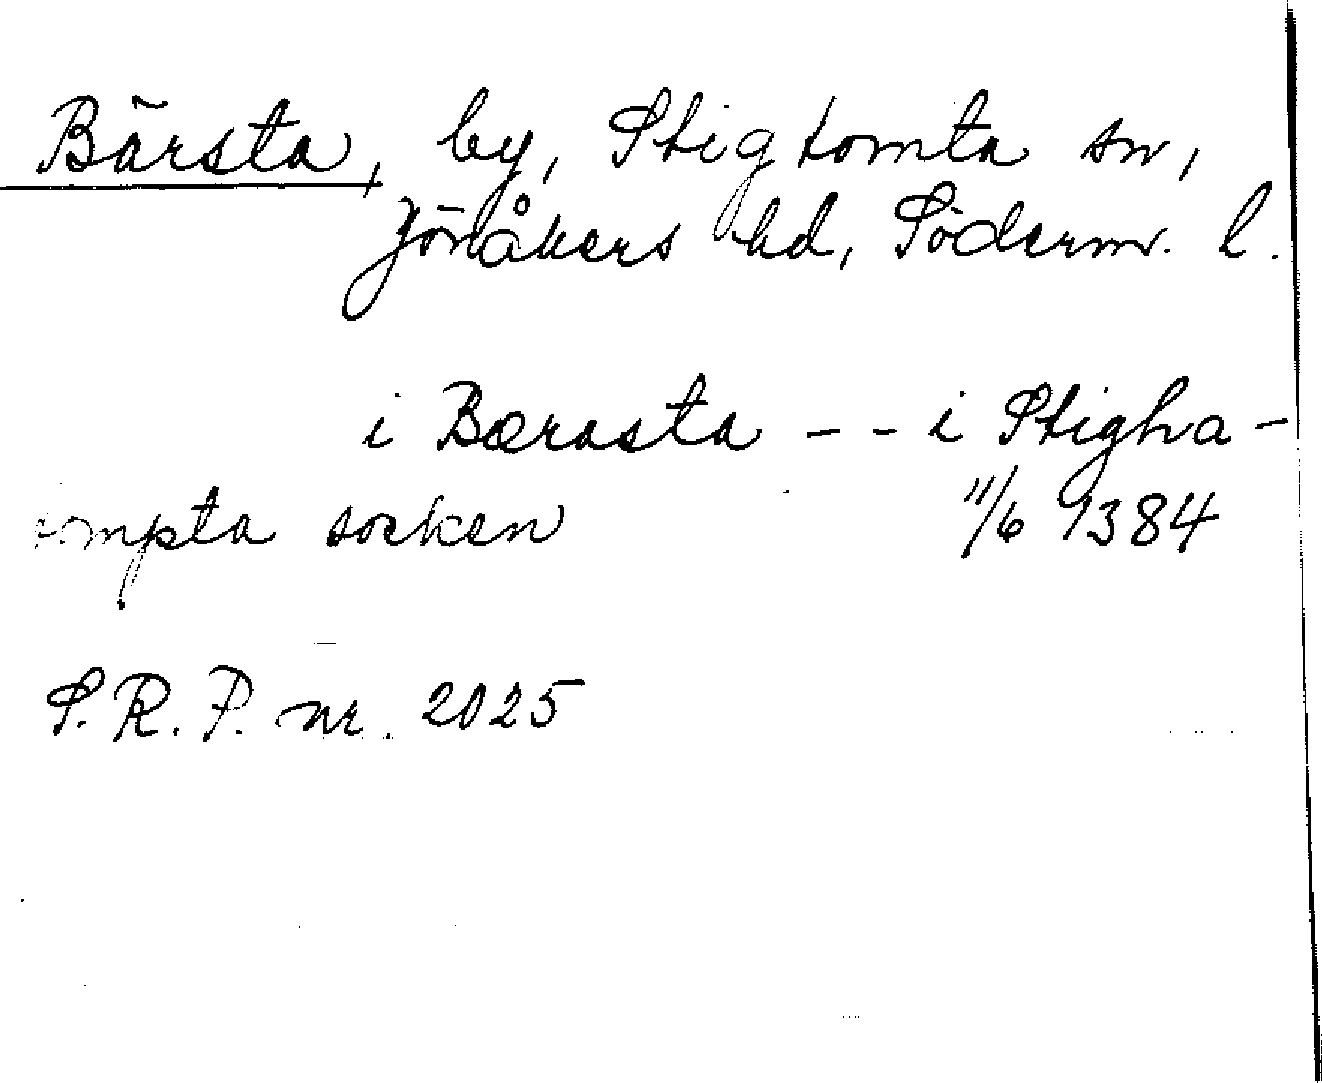 Bärsta, by, Stigtomta sn,
Jönåkers hd, Söderm. l.
i Bærasta - - i Stigha-
tompta socken 11/6 1384
S. R. P. nr. 2025